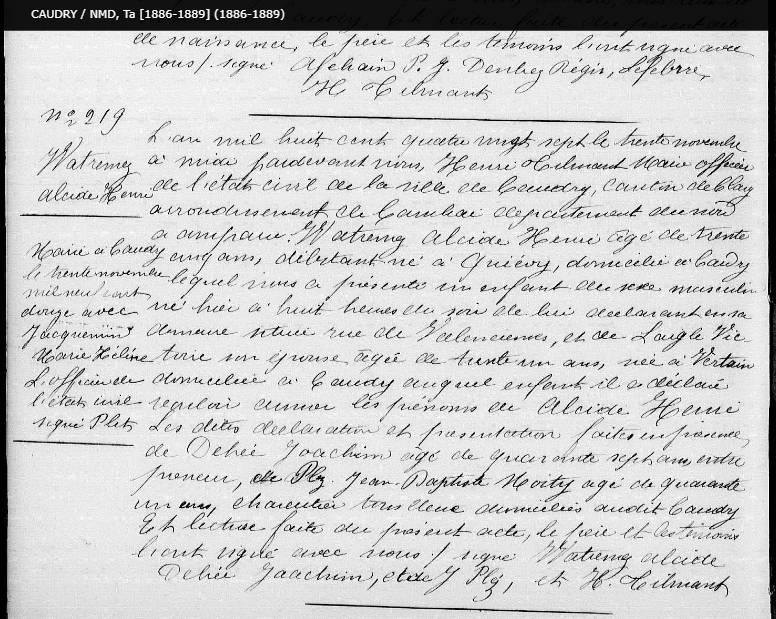 CAUDRY / NMD, Ta [1886-1889] (1886-1889)
de naissance, le père et les témoins l'ont signé avec
nous /. signé P. J. Denhez Régis, Lefebvre,
H. Hilmant
No 219
Watremez
Alcide Henri
Marié à Caudry
le trente novembre
mil neuf cent
douze avec
Jacquemin
Marie Hélène
L'officier de
l'état civil
signé Plet
L'an mil huit cent quatre vingt sept le trente novembre
à midi pardevant nous, Henri Hilmant Maire officier
de l'état civil de la ville de Caudry, canton de Clary
arrondissement de Cambrai département du nord
a comparu Watremez Alcide Henri âgé de trente
cinq ans, débitant né à Quiévy, domicilié à Caudry
lequel nous a présenté un enfant du sexe masculin
né hier à huit heures du soir de lui déclarant en sa
demeure située rue de Valenciennes, et de Laigle Vic
toire son épouse âgée de trente un ans, née à Vertain
domiciliée à Caudry auquel enfant il a déclaré
vouloir donner les prénoms de Alcide Henri
Les dites déclaration et présentation faites en présence
de Dehée Joachim âgé de quarante sept ans, entre
preneur, et de Jean-Baptiste âgé de quarante
un ans, tous deux domiciliés audit Caudry
Et lecture faite du présent acte, le père et les témoins
l'ont signé avec nous /. signé Watremez Alcide
Dehée Joachim, J et H. Hilmant